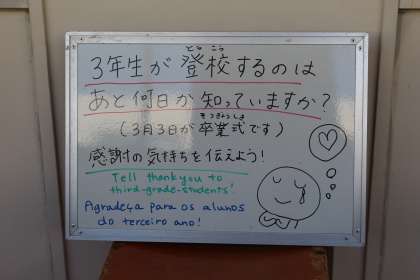 とう こう
3年生が登校するのは
あと何日か知っていますか?
そつぎょうしき
(3月3日が卒業式です)
感謝の気持ちを伝えよう!
Tell thank you to
third-grade-students!
Agradeça para os alunos
do terceiro ano!